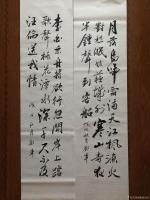 月落烏啼霜滿天江楓漁火
對愁眠姑蘇城外寒山寺夜
半鐘聲到客船
李白乘舟將欲行忽聞岸上踏
歌聲桃花潭水深千尺不及
汪倫送我情